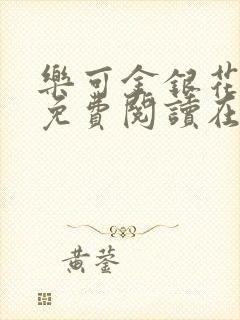 樂可金銀花
免費閱讀在
黃蓥